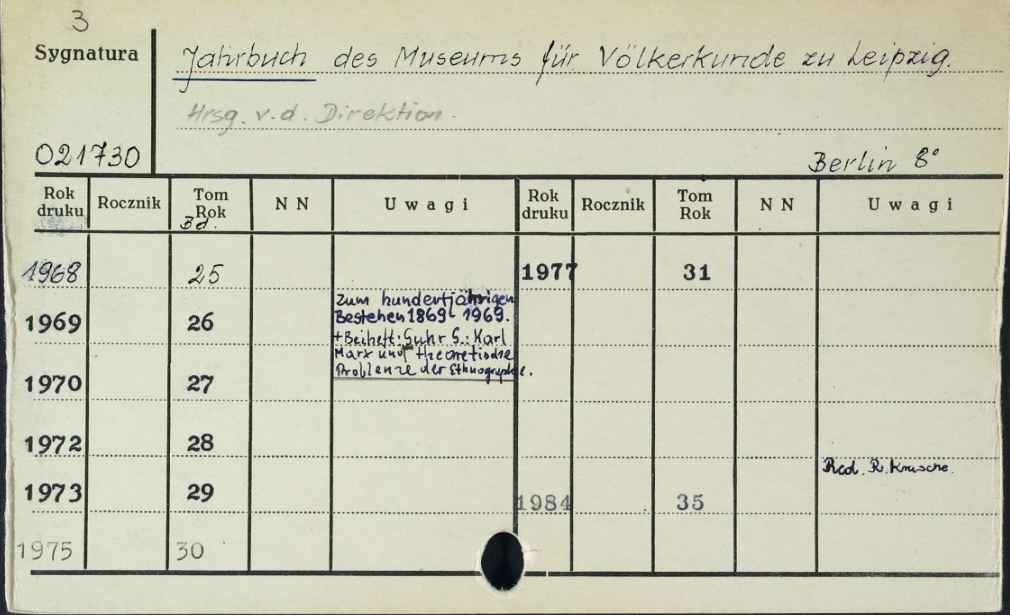 3
Sygnatura
Jahrbuch des Museums für Völkerkunde zu Leipzig.
Hrsg. v. d. Direktion.
021730
Berlin 8°
Rok druku Rocznik Tom Rok N N Uwagi Rok druku Rocznik Tom Rok N N Uwagi
Bd.
1968 25 1977 31
Zum hundertjährigen
Bestehen 1869-1969.
1969 26
+Beiheft: Guhr G.: Karl
Marx und theoretische
Probleme der Ethnographie.
1970 27
1972 28
Red. R. Krusche.
1973 29 1984 35
1975 30